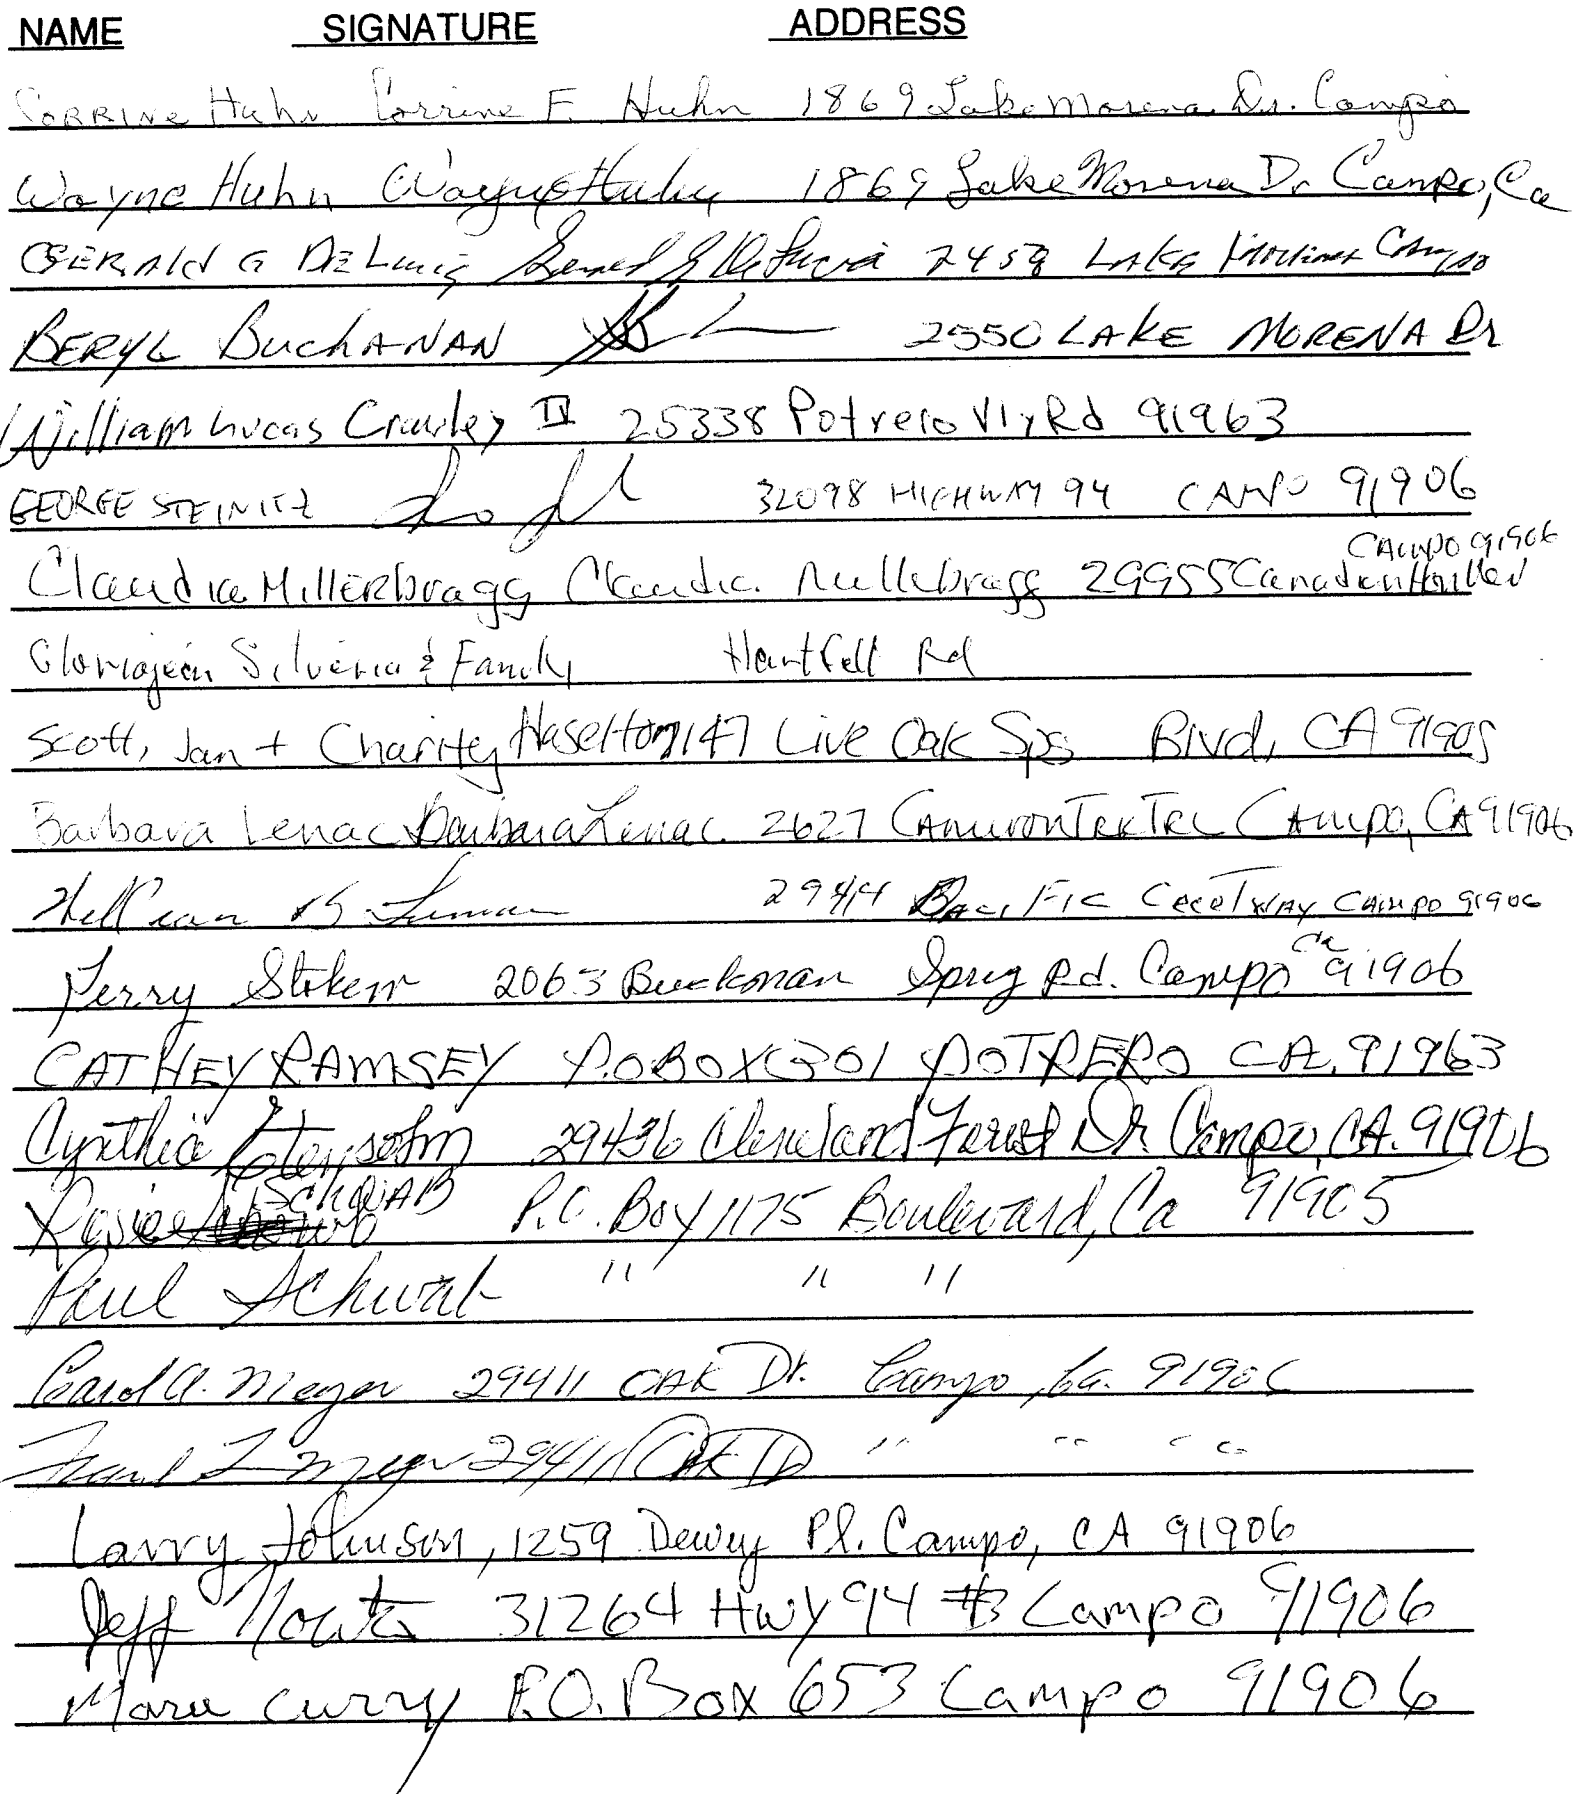 NAME SIGNATURE ADDRESS
CORRINE Huhn Corrine F. Huhn 1869 Lake Morena Dr. Campo
Wayne Huhn Wayne Huhn 1869 Lake Morena Dr Campo, Ca
GERALD G DELucia Gerald G DeLucia 2458 LAKE Morena Campo
BERYL BuchANAN 2550 LAKE MORENA Dr
William Lucas Crawley II 25338 Potrero Vly Rd 91963
GEORGE STEINITZ 32098 HIGHWAY 94 CAMPO 91906
CAMPO 91906
Claudia MillERbragg Claudia Millerbragg 29955
Gloriajean Silveria & Family Hartfell Rd
Scott, Jan + Charity Haselton 147 Live Oak Sps Blvd, CA 91905
Barbara Lenac Barbara Lenac 2627 Camuron Campo, CA 91906
CAMPO 91906
Ca
Perry Stoken 2063 Buckman Sprg Rd. Campo 91906
CATHEY RAMSEY P.O BOX 301 POTRERO CA. 91963
Cynthia 29436 Cleveland Forest Dr. Campo, CA. 91906
SCHWAB
Rosie P.O. Box 1175 Boulevard, Ca 91905
Paul Schwab " " "
Carol A. Meyer 29411 OAK Dr. Campo, Ca. 91906
Frank L Meyer 29411 OAK D " " "
Larry Johnson, 1259 Dewey Pl. Campo, CA 91906
Jeff 31264 Hwy 94 #3 Campo 91906
Marie Curry P.O. Box 653 Campo 91906